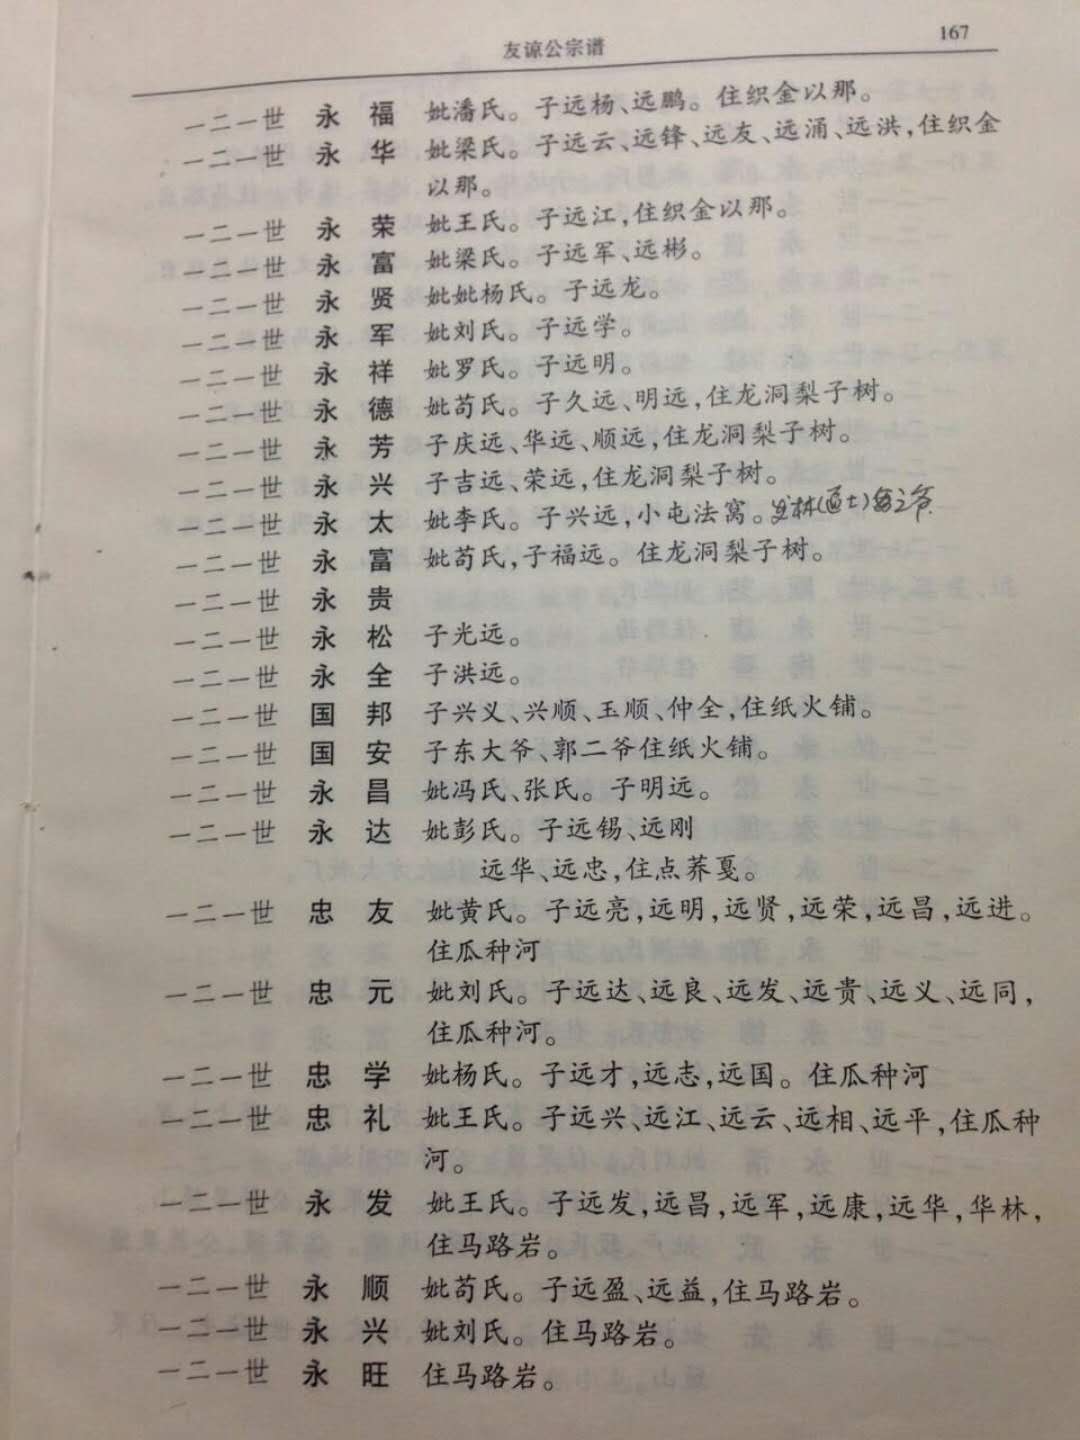 友谅公宗谱 167
一二一世 永 福 妣潘氏。子远杨、远鹏。住织金以那。
一二一世 永 华 妣梁氏。子远云、远锋、远友、远涌、远洪,住织金
以那。
一二一世 永 荣 妣王氏。子远江,住织金以那。
一二一世 永 富 妣梁氏。子远军、远彬。
一二一世 永 贤 妣妣杨氏。子远龙。
一二一世 永 军 妣刘氏。子远学。
一二一世 永 祥 妣罗氏。子远明。
一二一世 永 德 妣苟氏。子久远、明远,住龙洞梨子树。
一二一世 永 芳 子庆远、华远、顺远,住龙洞梨子树。
一二一世 永 兴 子吉远、荣远,住龙洞梨子树。
一二一世 永 太 妣李氏。子兴远,小屯法窝。
一二一世 永 富 妣苟氏,子福远。住龙洞梨子树。
一二一世 永 贵
一二一世 永 松 子光远。
一二一世 永 全 子洪远。
一二一世 国 邦 子兴义、兴顺、玉顺、仲全,住纸火铺。
一二一世 国 安 子东大爷、郭二爷住纸火铺。
一二一世 永 昌 妣冯氏、张氏。子明远。
一二一世 永 达 妣彭氏。子远锡、远刚
远华、远忠,住点荞戛。
一二一世 忠 友 妣黄氏。子远亮,远明,远贤,远荣,远昌,远进。
住瓜种河
一二一世 忠 元 妣刘氏。子远达、远良、远发、远贵、远义、远同,
住瓜种河。
一二一世 忠 学 妣杨氏。子远才,远志,远国。住瓜种河
一二一世 忠 礼 妣王氏。子远兴、远江、远云、远相、远平,住瓜种
河。
一二一世 永 发 妣王氏。子远发,远昌,远军,远康,远华,华林,
住马路岩。
一二一世 永 顺 妣苟氏。子远盈、远益,住马路岩。
一二一世 永 兴 妣刘氏。住马路岩。
一二一世 永 旺 住马路岩。